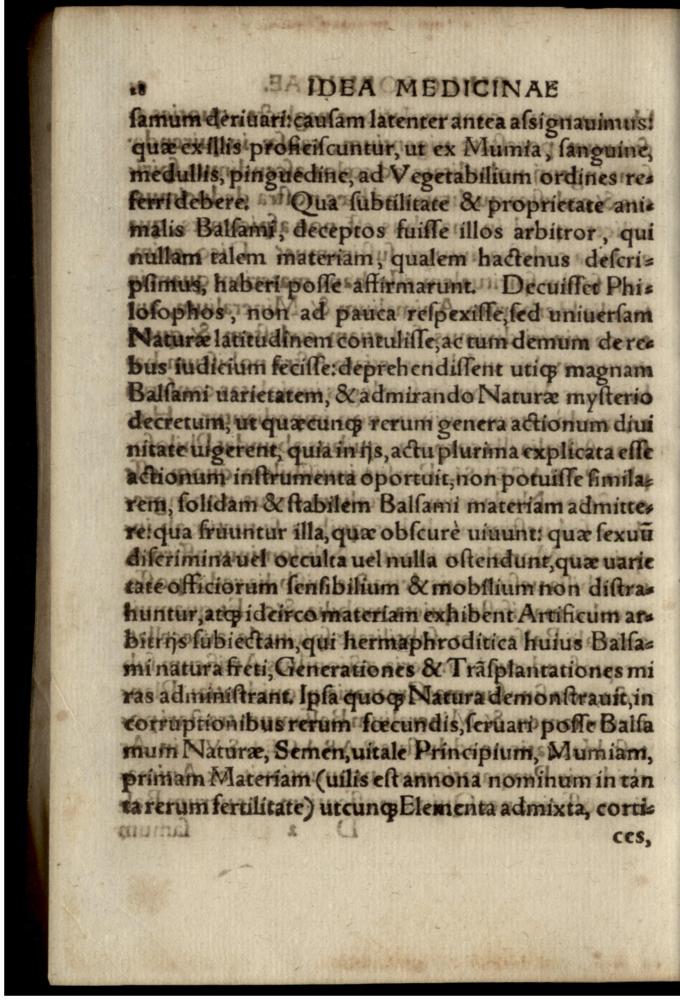 28 IDEA MEDICINAE
samum deriuari: causam latenter antea assignauimus:
quæ ex illis proficiscuntur, ut ex Mumia, sanguine,
medullis, pinguedine, ad Vegetabilium ordines re-
ferri debere. Qua subtilitate & proprietate ani-
malis Balsami, deceptos fuisse illos arbitror, qui
nullam talem materiam, qualem hactenus descri-
psimus, haberi posse affirmarunt. Decuisset Phi-
losophos, non ad pauca respexisse, sed uniuersam
Naturæ latitudinem contulisse, ac tum demum de re-
bus iudicium fecisse: deprehendissent utiqꝫ magnam
Balsami uarietatem, & admirando Naturæ mysterio
decretum, ut quæcunqꝫ rerum genera actionum diui
nitate uigerent, quia in ijs, actu plurima explicata esse
actionum instrumenta oportuit, non potuisse simila-
rem, solidam & stabilem Balsami materiam admitte-
re: qua fruuntur illa, quæ obscurè uiuunt: quæ sexuũ
discrimina uel occulta uel nulla ostendunt, quæ uarie
tate officiorum sensibilium & mobilium non distra-
huntur, atqꝫ idcirco materiam exhibent Artificum ar-
bitrijs subiectam, qui hermaphroditica huius Balsa-
mi natura freti, Generationes & Trãsplantationes mi
ras administrant. Ipsa quoqꝫ Natura demonstrauit, in
corruptionibus rerum fœcundis, seruari posse Balsa
mum Naturæ, Semen, uitale Principium, Mumiam,
primam Materiam (uilis est annona nominum in tan
ta rerum fertilitate) utcunqꝫ Elementa admixta, corti-
ces,